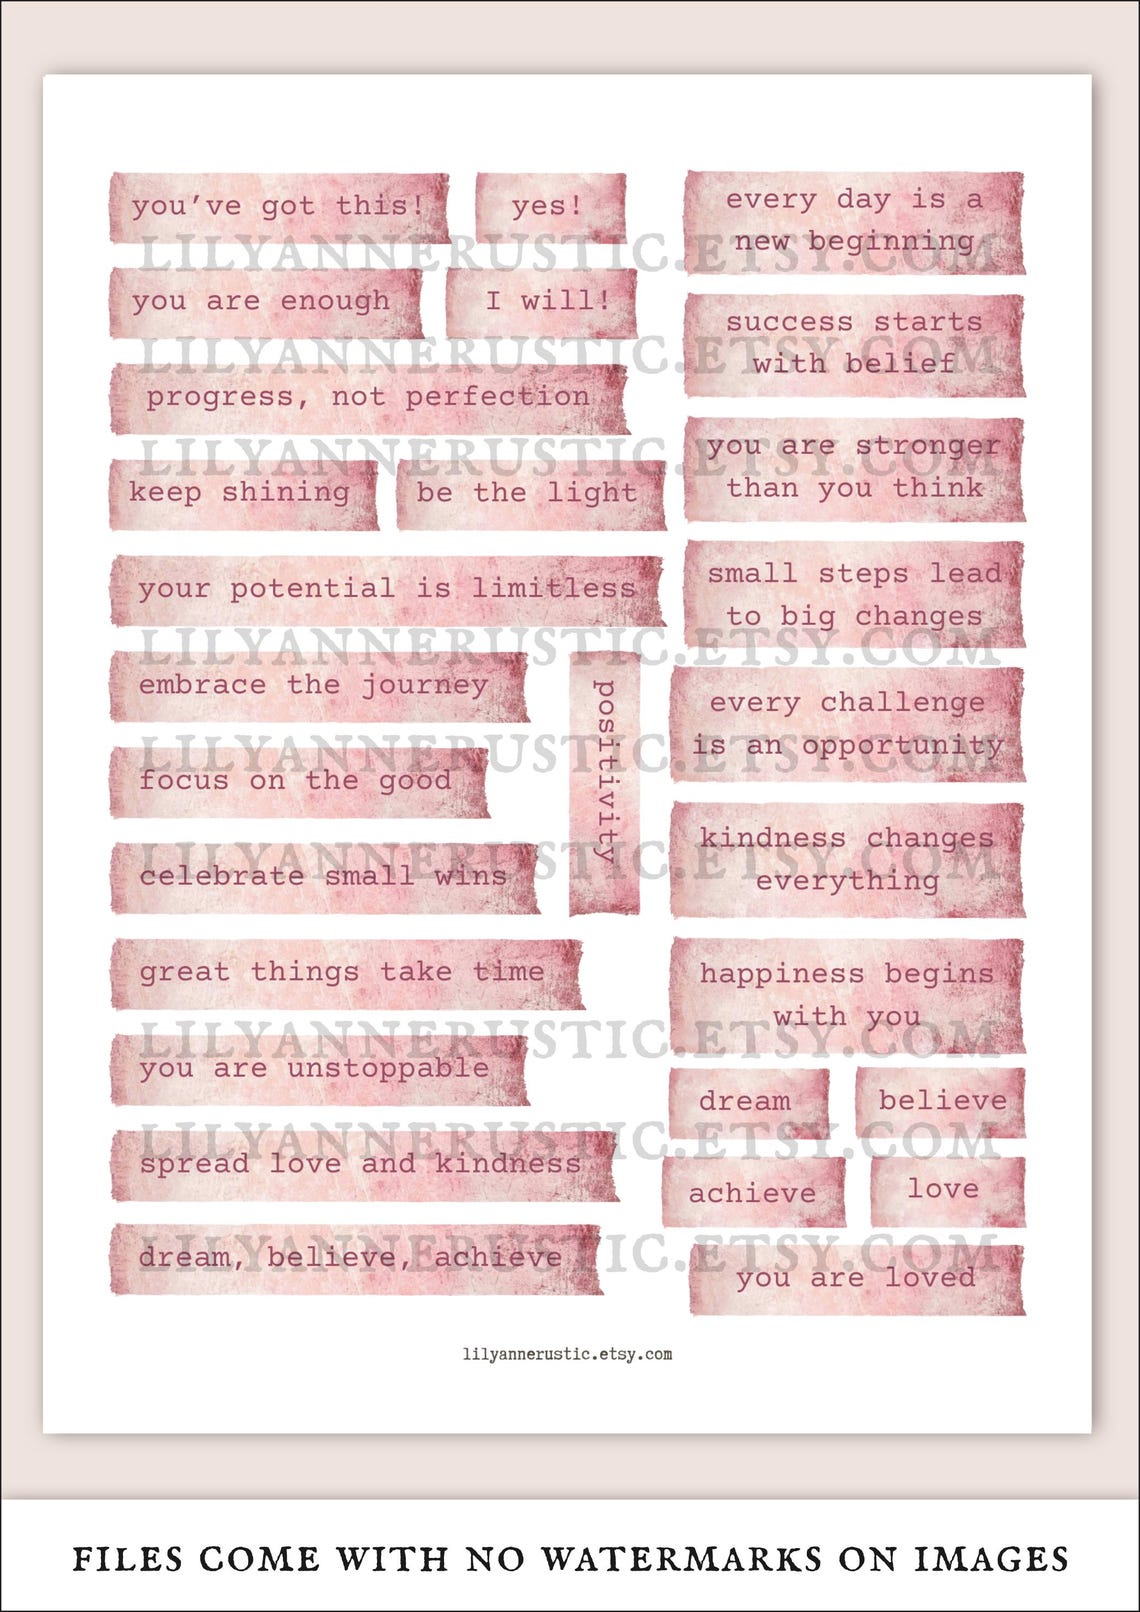 you've got this!
yes!
you are enough
I will!
progress, not perfection
keep shining
be the light
your potential is limitless
embrace the journey
focus on the good
celebrate small wins
great things take time
you are unstoppable
spread love and kindness
dream, believe, achieve
positivity
every day is a
new beginning
success starts
with belief
you are stronger
than you think
small steps lead
to big changes
every challenge
is an opportunity
kindness changes
everything
happiness begins
with you
dream
believe
achieve
love
you are loved
LILYANNERUSTIC.ETSY.COM
LILYANNERUSTIC.ETSY.COM
LILYANNERUSTIC.ETSY.COM
LILYANNERUSTIC.ETSY.COM
LILYANNERUSTIC.ETSY.COM
LILYANNERUSTIC.ETSY.COM
LILYANNERUSTIC.ETSY.COM
LILYANNERUSTIC.ETSY.COM
LILYANNERUSTIC.ETSY.COM
lilyannerustic.etsy.com
FILES COME WITH NO WATERMARKS ON IMAGES